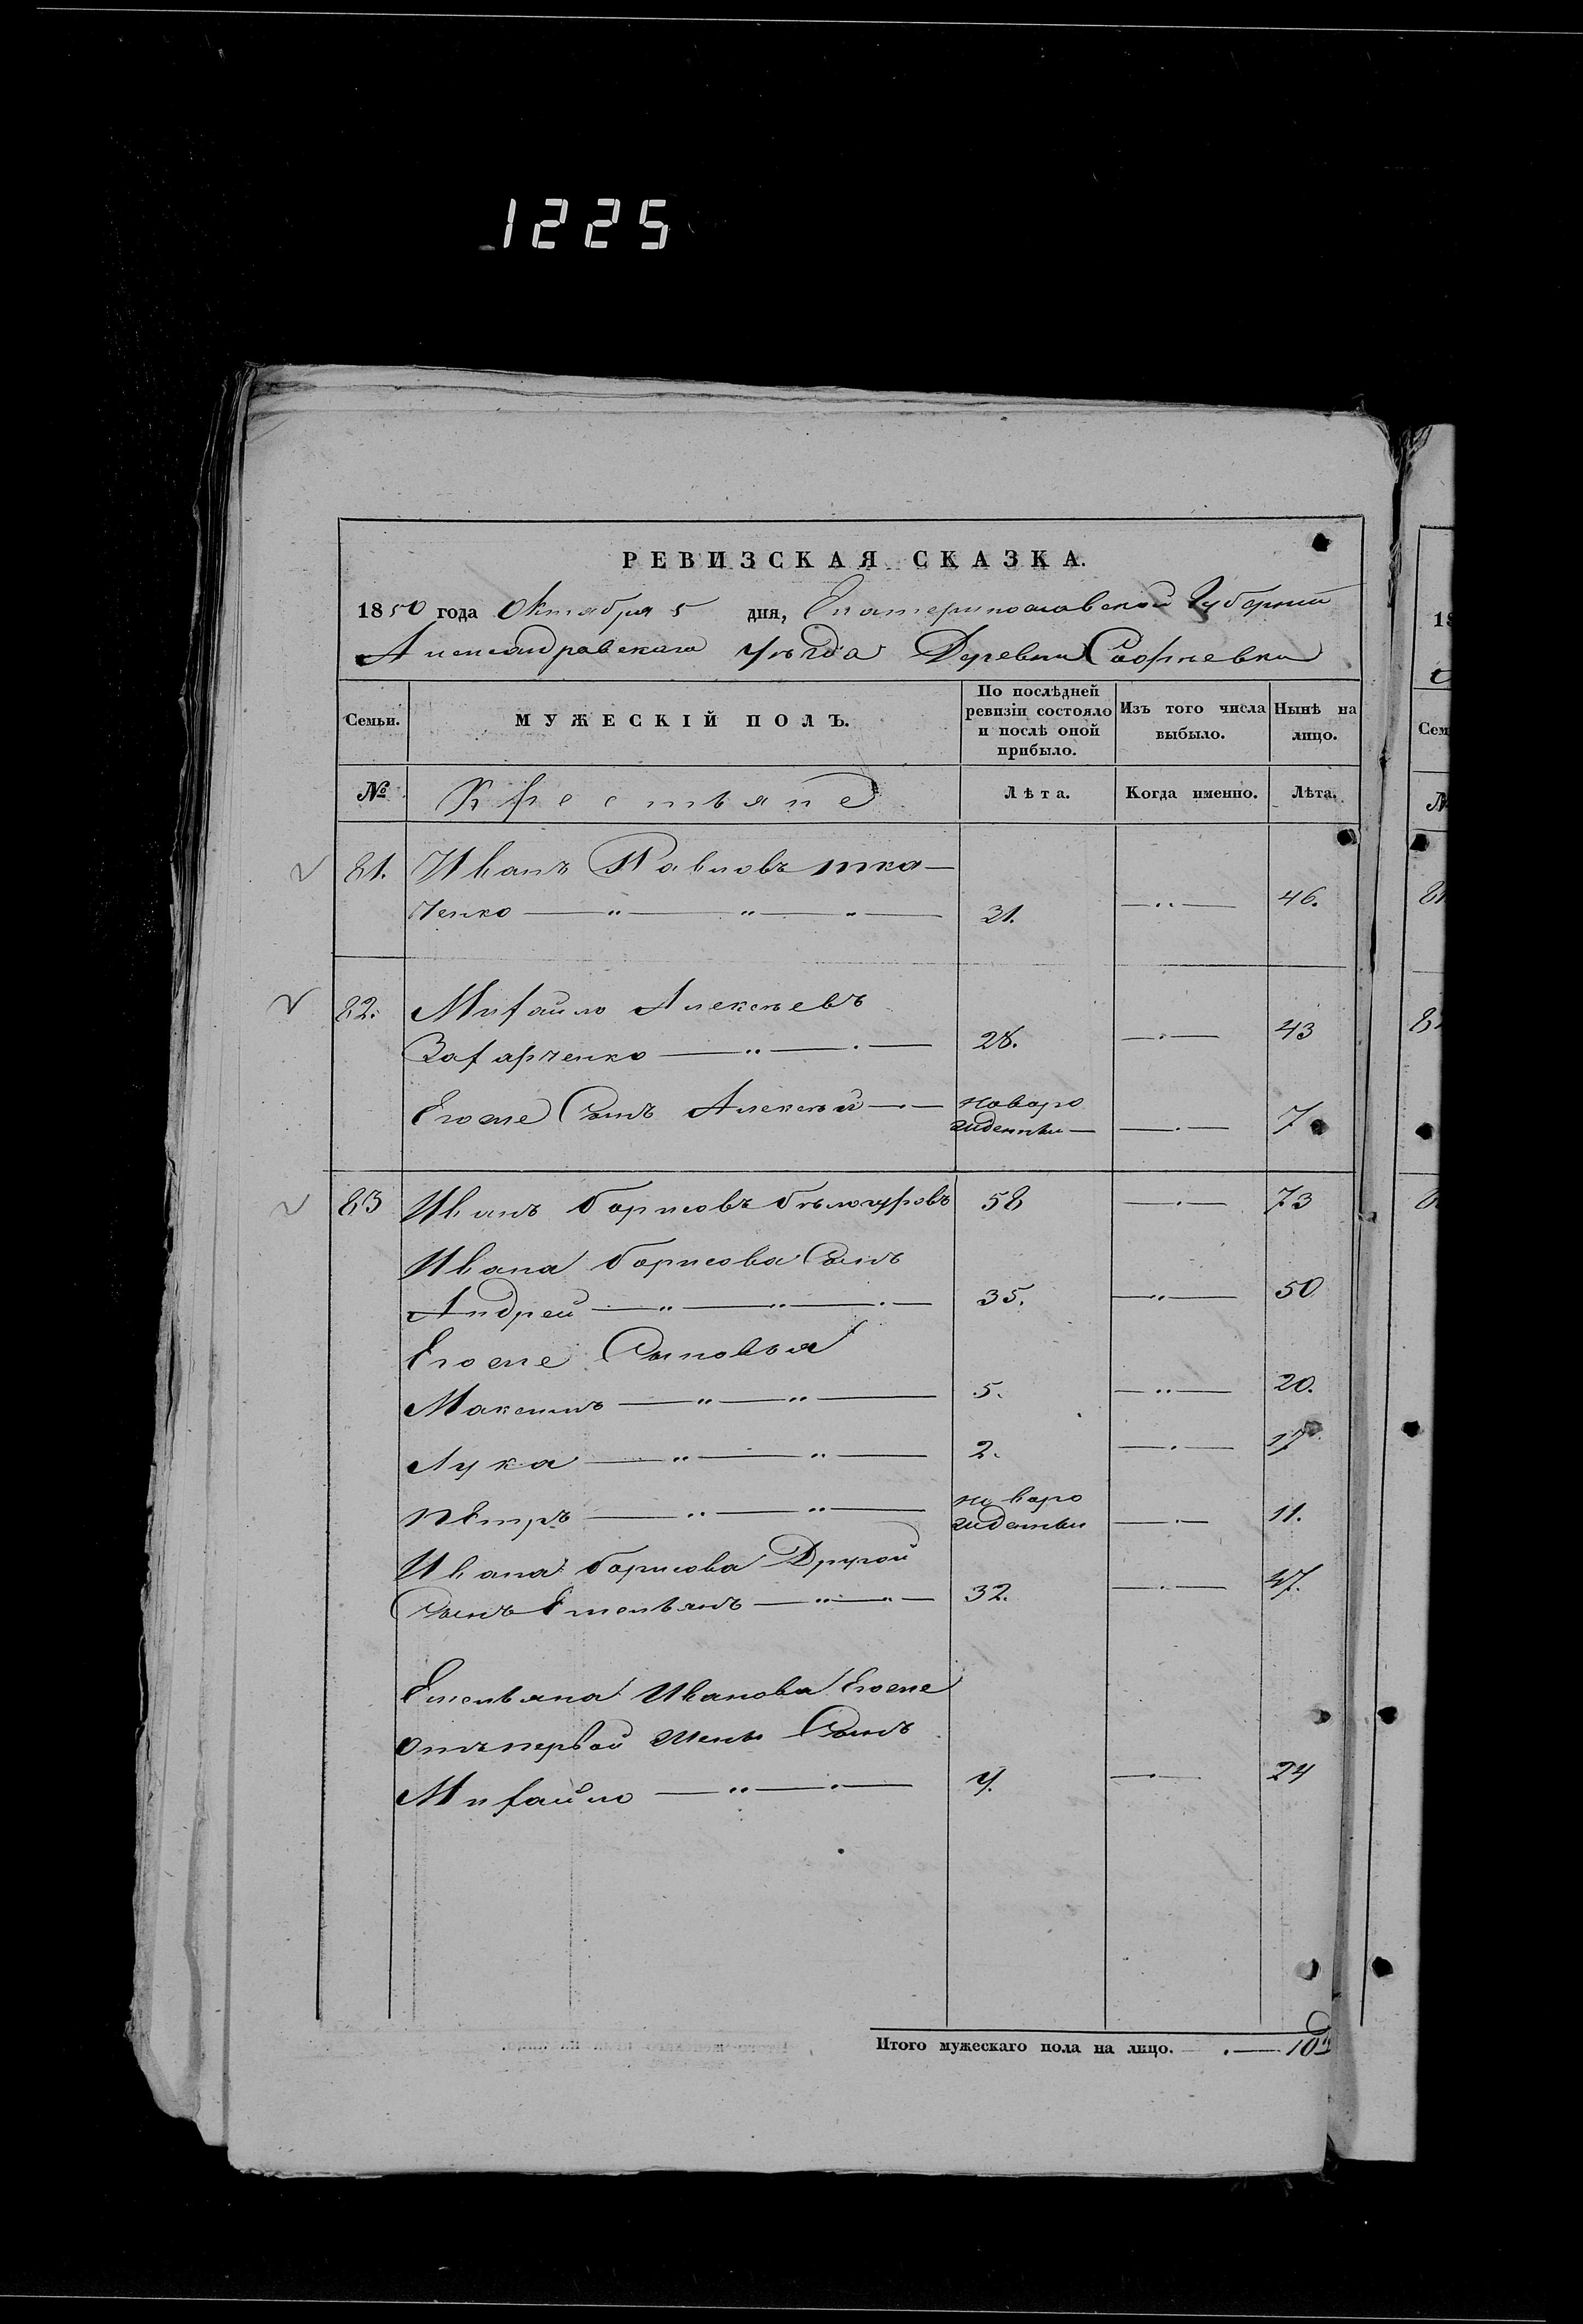 1225
РЕВИЗСКАЯ СКАЗКА.
1850 года Октября 5 дня, Екатеринославской Губерніи
Александровскаго Уѣзда Деревни Софіевки
Семьи. МУЖЕСКІЙ ПОЛЪ. По послѣдней ревизіи состояло и послѣ оной прибыло. Изъ того числа выбыло. Нынѣ на лицо.
№ Крестьяне Лѣта. Когда именно. Лѣта.
81. Иванъ Павловъ тка-
ченко 31. 46.
82. Михайло Алексѣевъ
Захарченко 28. 43
Егоже Сынъ Алексѣй новоро
жденный 7
83 Иванъ Борисовъ Бѣлогуровъ 58 73
Ивана Борисова Сынъ
Андрей 35. 50
Егоже Сыновья
Максимъ 5. 20.
Лука 2. 17
Петръ новоро
жденный 11.
Ивана Борисова Другой
Сынъ Емельянъ 32. 47.
Емельяна Иванова Егоже
отъ первой Жены Сынъ
Михайло 24
Итого мужескаго пола на лицо. 10
18
Сем
№
81
8